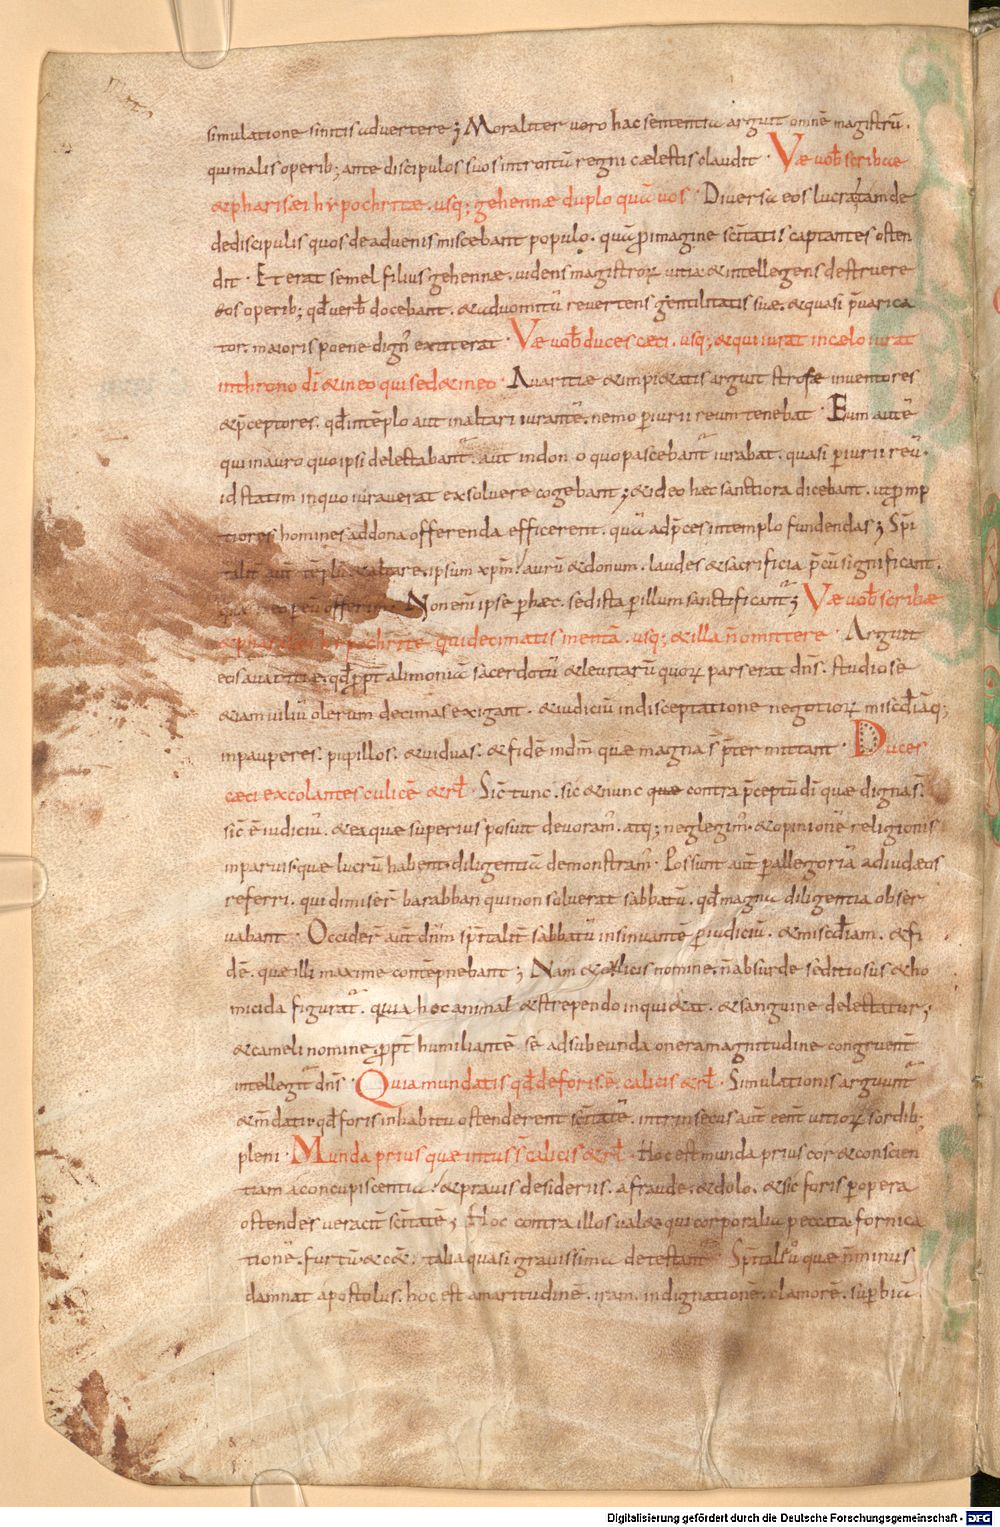 simulatione sinitis advertere; Moraliter vero hac sententia arguit omnē magistrū.
qui malis operib; ante discipulos suos introitū regni cælestis claudit · Væ vob̄ scribae
& pharisæi hypochritæ. usq; gehennæ duplo quā vos · Diversa eos lucra tam de
de discipulis quos de advenis miscebant populo. quā p̄ imagine sc̄itatis captantes osten
dit · Et erat semel filius gehennæ. videns magistroꝝ vitia & intellegens destruere
eos operib; qd̄ verb̄ docebant. & ad vomitū revertens gentilitatis suæ. & quasi p̄varica
tor. maioris poene dign᾿ extiterat · Væ vob̄ duces cæci. usq; & qui iurat in cælo iurat
in throno dī & in eo qui sed& in eo · Avaritiæ & impi&atis arguit strofæ inventores
& p̄ceptores. qd̄ in tēplo aut in altari iurantē. nemo p̄iurii reum tenebat · Eum autē
qui in auro quo ipsi delectabant᾿. aut in don o quo pascebant᾿ iurabat. quasi p̄iurii reū.
id statim in quo iuraverat exsolvere cogebant; & ideo hæc sanctiora dicebant. ut p̄mp
tiores homines ad dona offerenda efficerent. quā ad p̄ces in templo fundendas; Sp̄i
talit᾿ aut̄ tēplū & altare. ipsum xp̄m! aurū & donum. laudes & sacrificia p̄cū significant.
quæ in eo p̄ eū offerim᾿. Non eni ipse p̄ hæc. sed ista p̄ illum sanctificant᾿; Væ vob̄ scribæ
& pharisæi hypochritæ qui decimatis mentā. usq; & illa n̄ omittere · Arguit
eos avaritiæ. qd̄ p̄pt᾿ alimonia sacerdotū & levitarū quoꝝ pars erat dn̄s. studiose
&iam viliū olerum decimas exigant. & iudiciū in disceptatione negotioꝝ misc̄diāq;
in pauperes. pupillos. & viduas. & fidē in dm̄ quæ magna s̄ p̄termittant · Duces
cæci excolantes culicē & rl̄ · Sic̄ tunc. sic & nunc quæ contra p̄ceptū dī quæ digna s̄.
sic̄ ē iudiciū. & ea quæ superius posuit devoram᾿. atq; neglegim᾿. & opinionē religionis
in parvis. quæ lucrū habent. diligentia demonstram᾿ · Possunt aut̄ p̄ allegoriā ad iudæos
referri. qui dimiser᾿ barabban qui non solverat sabbatū. qd̄ magna diligentia obser
vabant · Occider᾿ aut̄ dn̄m sp̄italit᾿ sabbatū insinuantē p̄ iudiciū. & misc̄diam. & fi
dē. quæ illi maxime contēpnebant; Nam & culicis nomine. n̄ absurde seditiosus & ho
micida figurat᾿. quia hoc animal & strependo inqui&at. & sanguine delectatur;
& cameli nomine. p̄pt᾿ humiliantē se ad subeunda onera magnitudine congruent᾿
intellegit᾿ dn̄s · Quia mundatis qd̄ deforis ē. calicis & rl̄ · Simulationis arguunt᾿
& m̄datii qd̄ foris in habitu ostenderent sc̄itatē. intrinsecus aut̄ eēnt vitioꝝ sordib;
pleni · Munda prius quæ intus s̄ calicis & rl̄ · Hoc est munda prius cor & conscien
tiam a concupiscentia! & pravis desideriis. a fraude. & dolo. & sic foris p̄ opera
ostendes veracit᾿ sc̄itatē; Hoc contra illos val& qui corporalia peccata fornica
tionē. furtū & c&̄. talia quasi gravissima detestant᾿ Sp̄italia v᾿ quæ n̄ minus
damnat apostolus. hoc est amaritudinē. iram. indignationē. clamorē. superbia
Digitalisierung gefördert durch die Deutsche Forschungsgemeinschaft - DFG